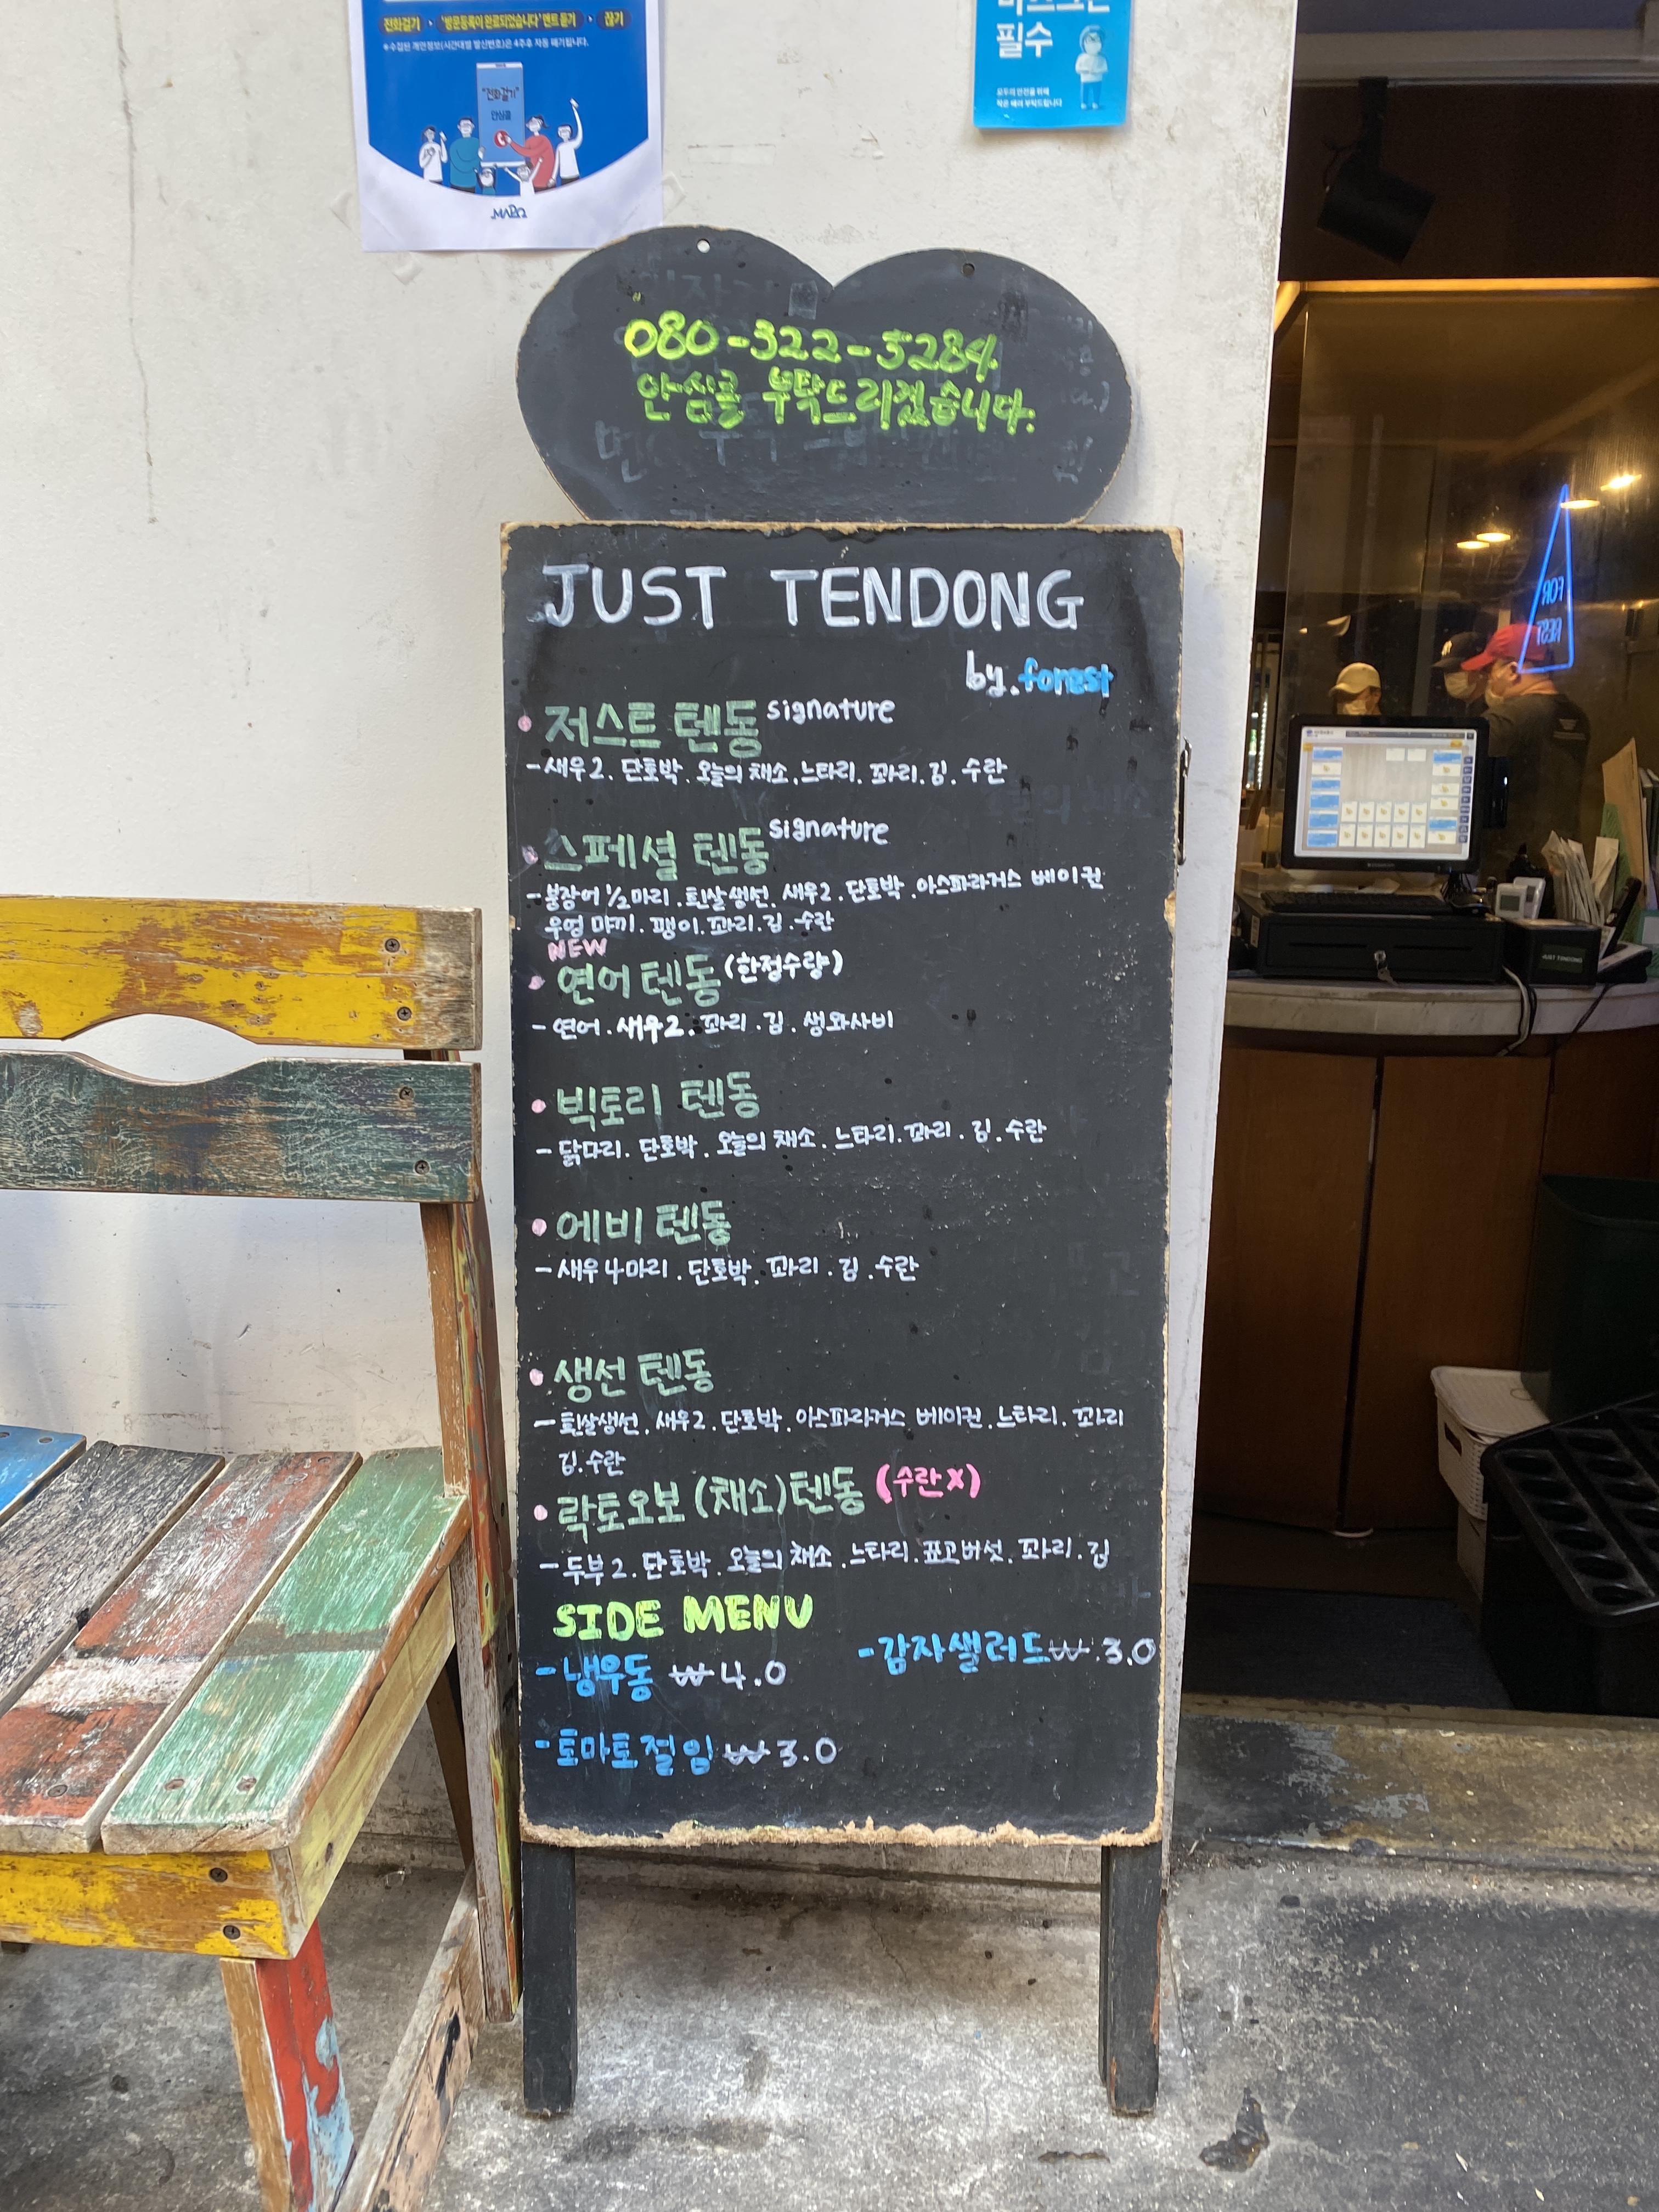 전화걸기 · '방문등록이 완료되었습니다' 멘트 듣기 · 끊기
※수집된 개인정보(시간대별 발신번호)은 4주후 자동 폐기됩니다.
"전화걸기"
안심콜
필수
모두의 안전을 위해
080-322-5284
안심콜 부탁드리겠습니다.
JUST TENDONG
by.forest
저스트 텐동 signature
-새우2. 단호박. 오늘의 채소.느타리. 꽈리.김. 수란
스페셜 텐동 signature
-붕장어 1/2마리.흰살생선. 새우2.단호박.아스파라거스 베이컨
우엉 마끼. 팽이.꽈리.김.수란
NEW
연어 텐동 (한정수량)
-연어.새우2.꽈리.김.생와사비
빅토리 텐동
-닭다리.단호박.오늘의 채소.느타리.꽈리.김.수란
에비 텐동
-새우4마리.단호박.꽈리.김.수란
생선 텐동
-흰살생선.새우2.단호박.아스파라거스 베이컨.느타리.꽈리
김.수란
락토오보 (채소)텐동 (수란X)
-두부2.단호박.오늘의 채소.느타리.표고버섯.꽈리.김
SIDE MENU
-냉우동 ₩4.0
-감자샐러드₩.3.0
-토마토절임₩3.0
FOR
REST
JUST TENDONG